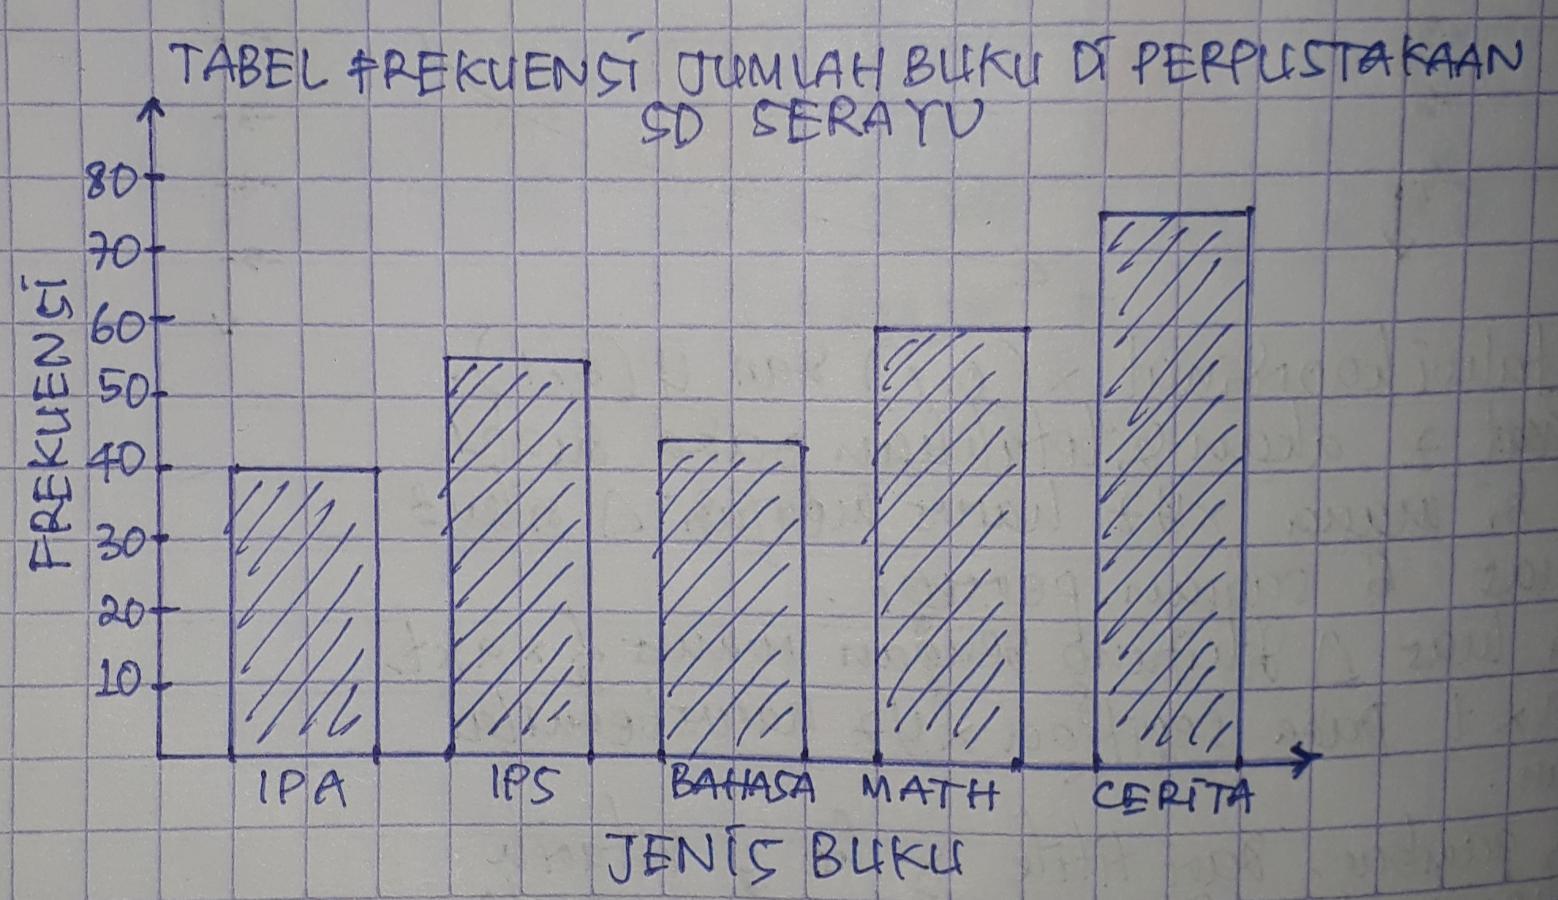 TABEL FREKUENSI JUMLAH BUKU DI PERPUSTAKAAN
SD SERAYU
80
70
60
50
40
30
20
10
FREKUENSI
IPA IPS BAHASA MATH CERITA
JENIS BUKU